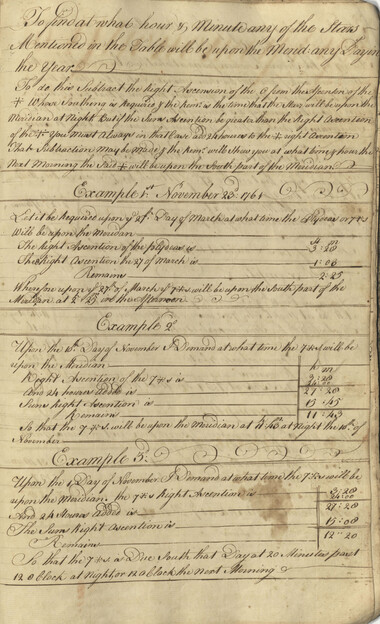 To find at what hour & Minute any of the Stars
Mentioned in the Table will be upon the Merid any Day in
the Year
To do this Subtract the Right Ascension of the ☉ from the Ascention of the
✳ Whose Southing is Required & the Remr. is the time that the Star will be upon the
Meridian at Night. But if the Suns Ascention be greater than the Right Ascention
of the ✳ You Must always in that Case add 24 hours to the ✳ right Ascention
That Subtraction May be made & the Remr. will Shew you at what hour from the
Next Morning the Said ✳ will be upon the South part of the Meridian.
Example 1st. November 23d. 1761
Let it be Required upon ye 27th. Day of March at what time the or 7✳s
Will be upon the Meridian
h m
The Right Ascention of the is 3:28
The Right Ascention the 27 of March is 1:03
Remains 2:25
Wherefore upon ye 27th. of March ye 7✳s will be upon the South part of the
Meridian at 2h 25 in the afternoon.
Example 2d.
Upon the 10th. Day of November I Demand at what time the 7✳s will be
upon the Meridian
h m
Right Ascention of the 7✳s is 3:28
And 24 hours added is 27:28
Suns Right Ascention is 15:45
Remains 11:43
So that the 7✳s. will be upon the Meridian at at Night the 10th. of
November
Example 3d.
Upon the 1 Day of November I Demand at what time the 7✳s will be
upon the Meridian. The 7✳s Right Ascention is 3:28
24:00
And 24 Hours added is 27:28
The Suns Right Ascention is 15:08
Remains 12:20
So that the 7✳s is Due South that Day at 20 Minutes past
12 o Clock at Night, or 12 o Clock the Next Morning